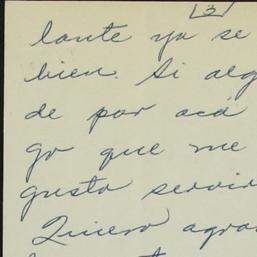 3
lante ya se
bien. Si alg
de por acá
go que me
gusto servir
Quiero agra